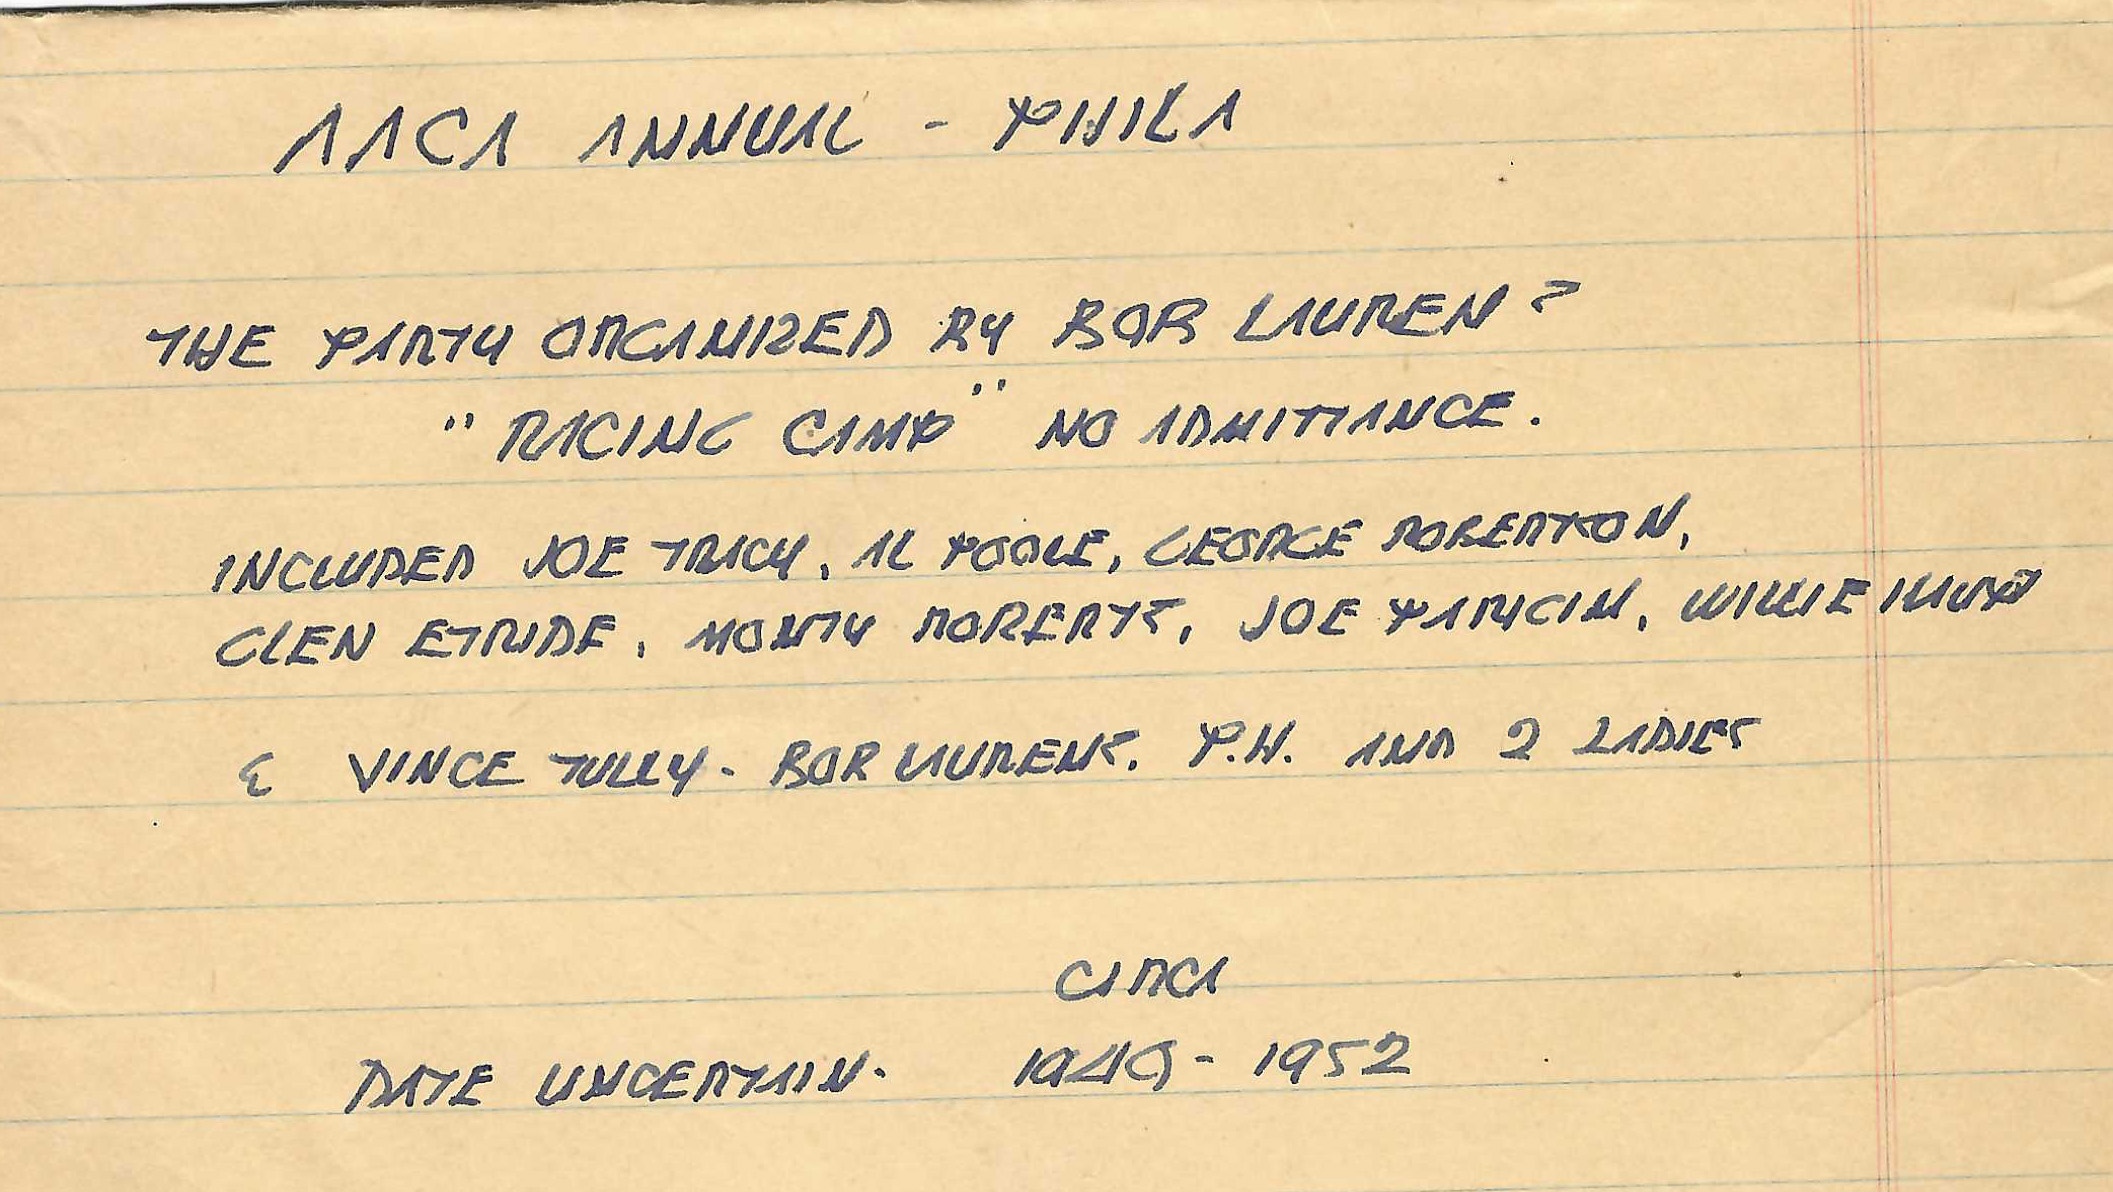 AACA ANNUAL - PHILA
THE PARTY ORGANIZED BY BOB LAUREN?
"RACING CAMP" NO ADMITTANCE.
INCLUDED JOE TRACY, AL POOLE, GEORGE ROBERTSON,
GLEN ETRIDE, MONTY ROBERTS, JOE WILLIE
& VINCE TULLY - BOB LAURENS. P.H. AND 2 LADIES
CIRCA
DATE UNCERTAIN - 1949 - 1952